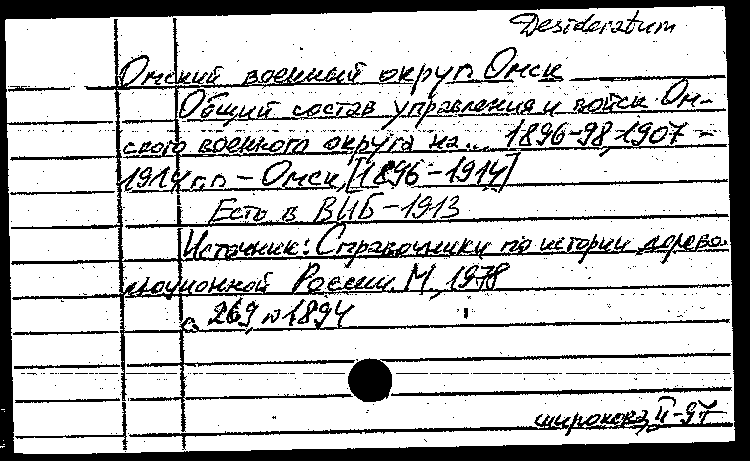 Desideratum
Омский военный округ. Омск
Общий состав управления и войск Ом-
ского военного округа на... 1896-98, 1907 -
1914 г.г. - Омск, [1896-1914]
Есть в ВИБ-1913
Источник: Справочники по истории дорево-
люционной России. М., 1978
с 269, №1894
широкова, II-97